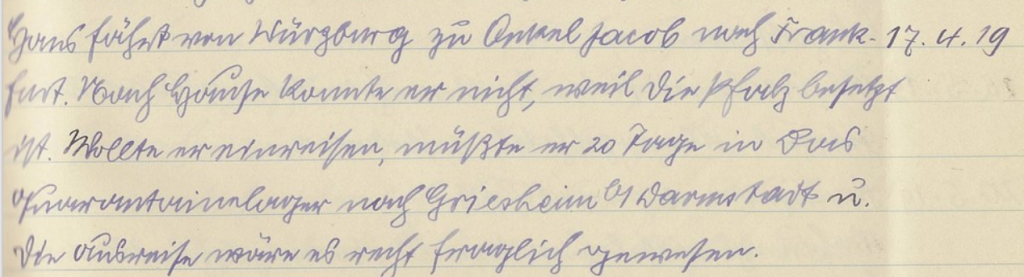 Hans fährt von Würzburg zu Onkel Jacob nach Frank- 17.4.19
furt. Nach Hause konnte er nicht, weil die Pfalz besetzt
ist. Wollte er einreisen, müßte er 20 Tage in das
Quarantainelager nach Griesheim b/ Darmstadt u.
die Ausreise wäre es recht fraglich gewesen.